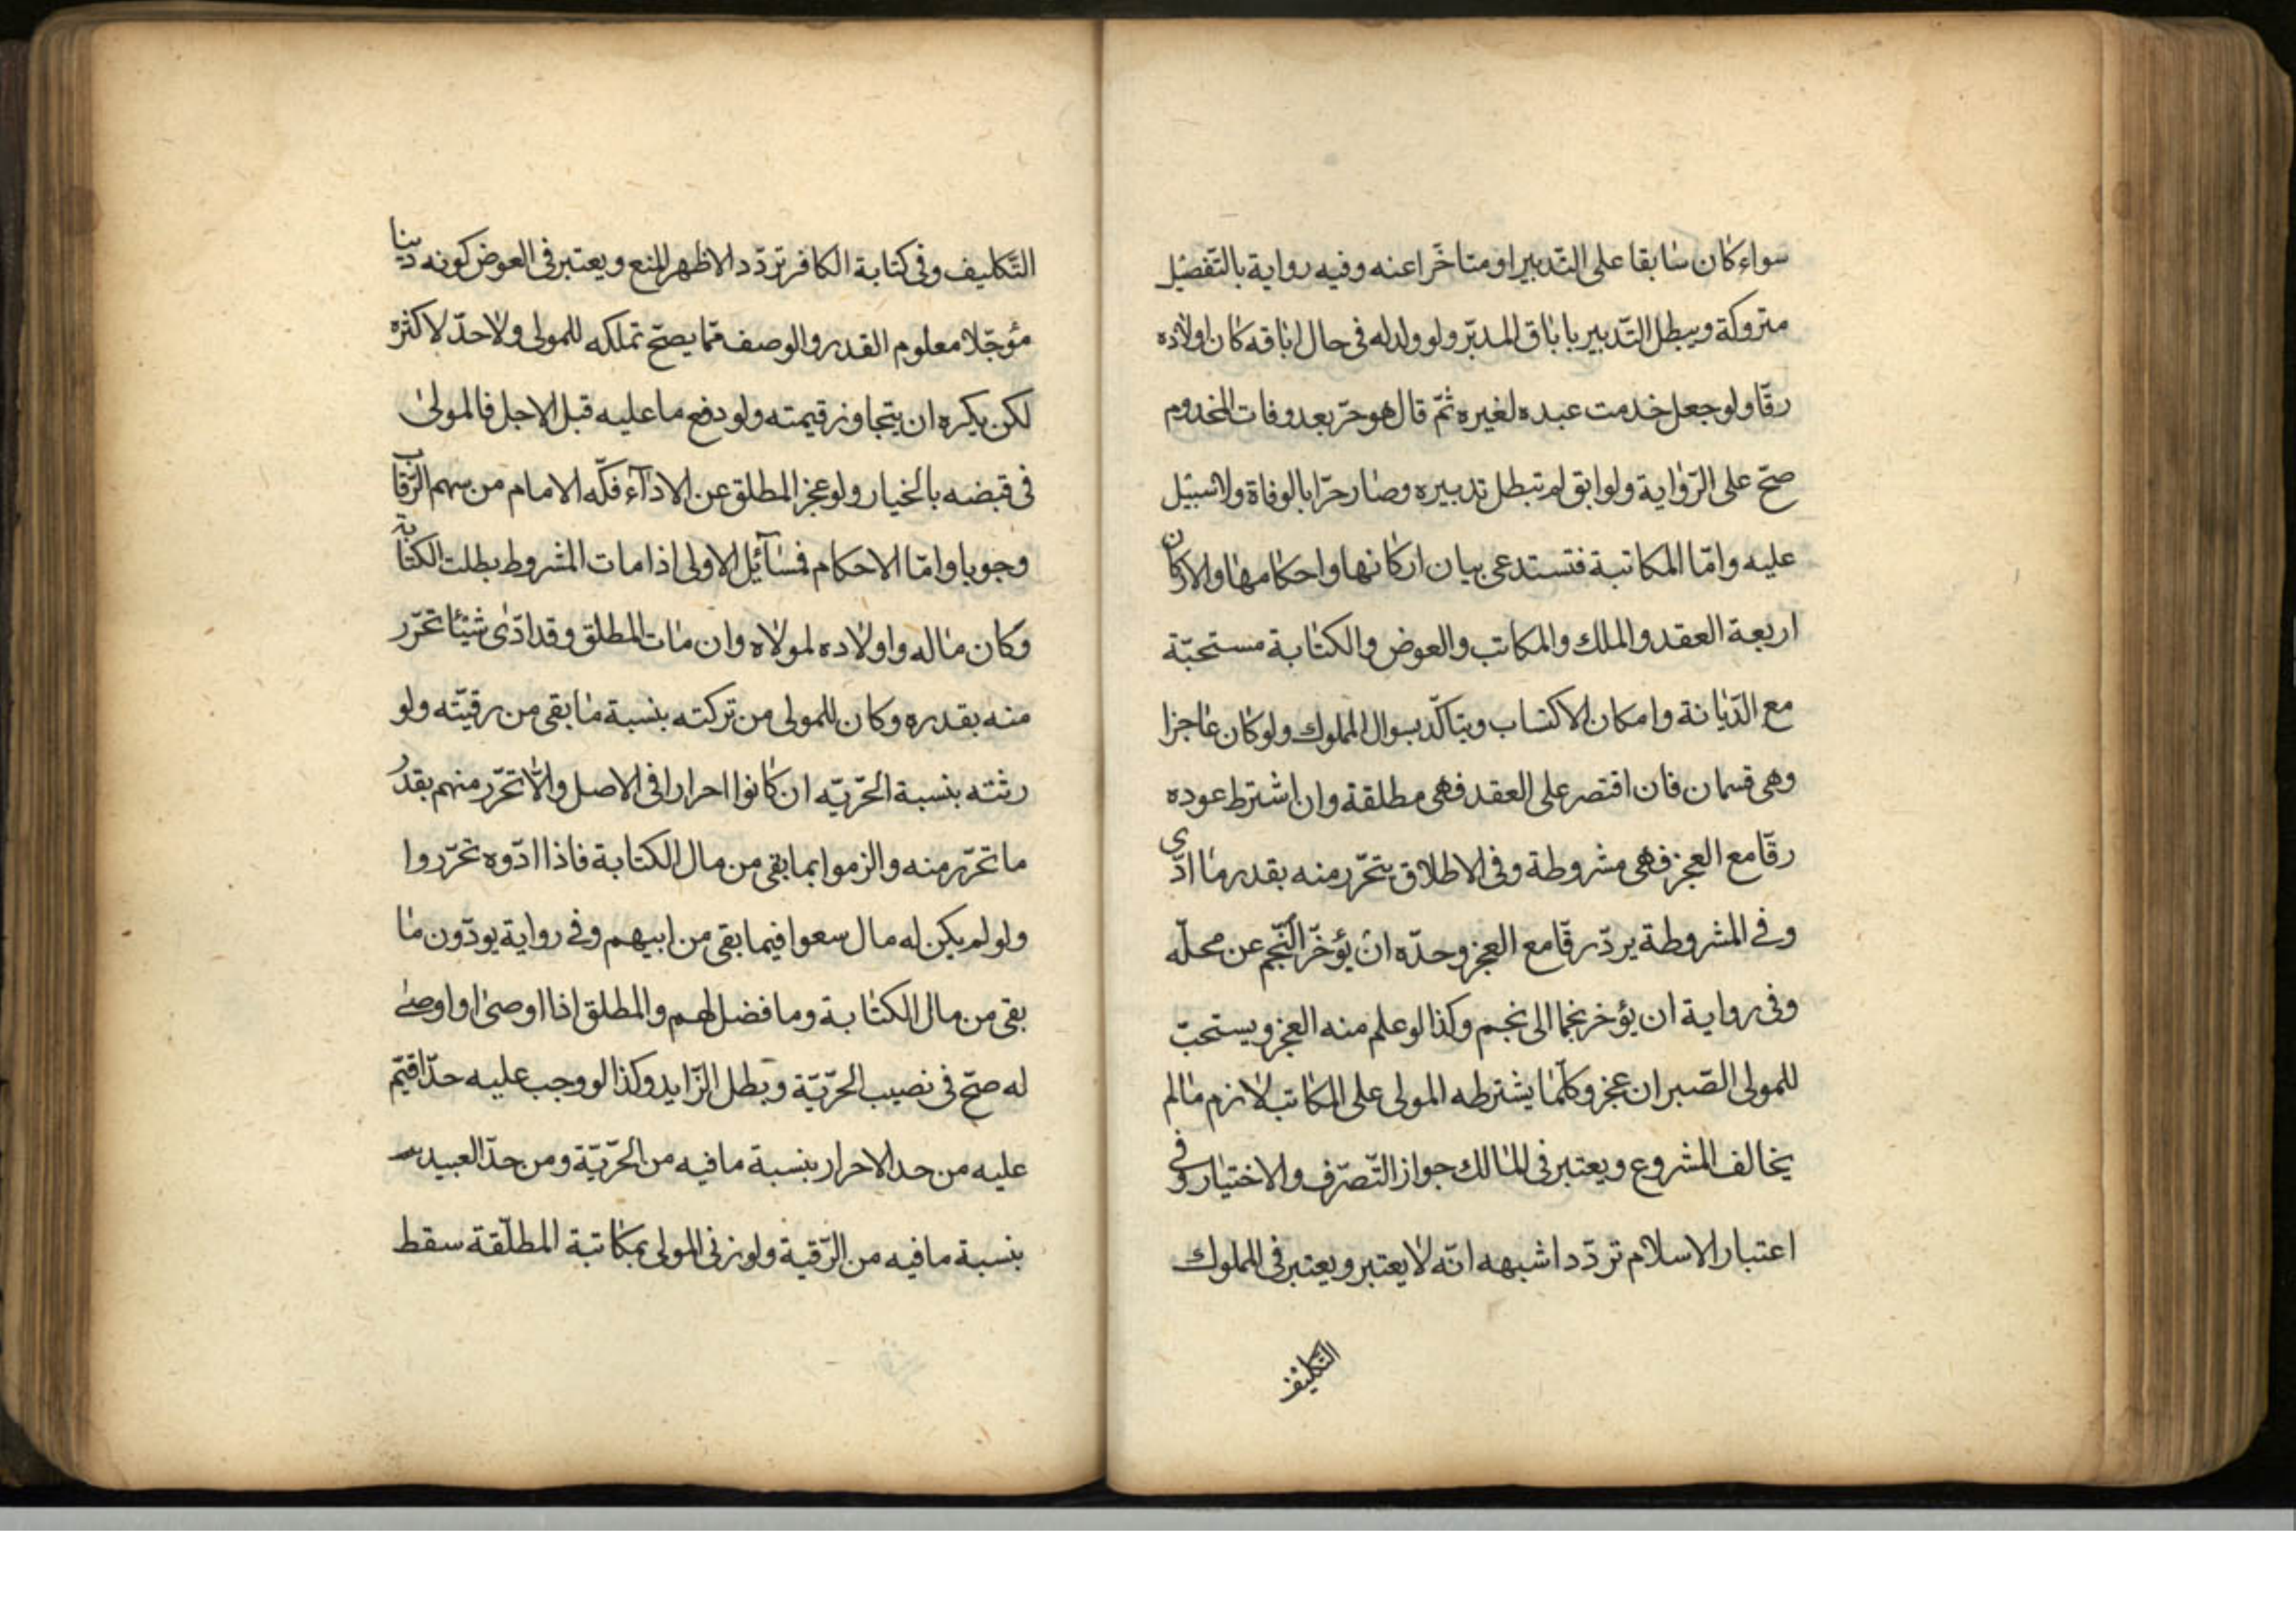 سواء كان سابقا على التّدبير او متاخّرا عنه وفيه رواية بالتّفصيل
متروكة ويبطل التّدبير باباق المدبّر ولو ولد له فى حال اباقه كان اولاده
رقّا ولو جعل خدمت عبده لغيره ثمّ قال هو حرّ بعد وفات المخدوم
صحّ على الرّواية ولو ابق لم تبطل تدبيره وصار حرّا بالوفاة ولا سبيل
عليه وامّا المكاتبة فتستدعى بيان اركانها واحكامها والاركان
اربعة العقد والملك والمكاتب والعوض والكتابة مستحبّة
مع الدّيانة وامكان الاكتساب ويتاكّد بسوال المملوك ولو كان عاجزا
وهى قسمان فان اقتصر على العقد فهى مطلقة وان اشترط عوده
رقّا مع العجز فهى مشروطة وفى الاطلاق يتحرّر منه بقدر ما ادّى
وفى المشروطة يردّ رقّا مع العجز وحدّه ان يؤخّر النّجم عن محلّه
وفى رواية ان يؤخر نجما الى نجم وكذا لو علم منه العجز ويستحبّ
للمولى الصّبر ان عجز وكلّما يشترطه المولى على المكاتب لازم مالم
يخالف المشروع ويعتبر فى المالك جواز التّصرّف والاختيار وفى
اعتبار الاسلام تردّد اشبهه انّه لا يعتبر ويعتبر فى المملوك
التّكليف
التّكليف وفى كتابة الكافر تردّد الاظهر المنع ويعتبر فى العوض كونه دينا
مؤجّلا معلوم القدر والوصف ممّا يصحّ تملكه للمولى ولا حدّ لاكثره
لكن يكره ان يتجاوز قيمته ولو دفع ما عليه قبل الاجل فالمولى
فى قبضه بالخيار ولو عجز المطلق عن الادآء فكّه الامام من سهم الرّقاب
وجوبا وامّا الاحكام فمسآئل الاولى اذا مات المشروط بطلت الكتابة
وكان ماله واولاده لمولاه وان مات المطلق وقد ادّى شيئا تحرّر
منه بقدره وكان للمولى من تركته بنسبة ما بقى من رقيّته ولو
رثته بنسبة الحرّيّه ان كانوا احرارا فى الاصل والّا تحرّر منهم بقدر
ما تحرّر منه والزموا بما بقى من مال الكتابة فاذا ادّوه تحرّروا
ولو لم يكن له مال سعوا فيما بقى من ابيهم وفى رواية يودّون ما
بقى من مال الكتابة وما فضل لهم والمطلق اذا اوصى او اوصى
له صحّ فى نصيب الحرّيّة وبطل الزّايد وكذا لو وجب عليه حدّ اقيم
عليه من حد الاحرار بنسبة ما فيه من الحرّيّة ومن حدّ العبيد
بنسبة ما فيه من الرّقية ولو زنى المولى بمكاتبة المطلّقة سقط